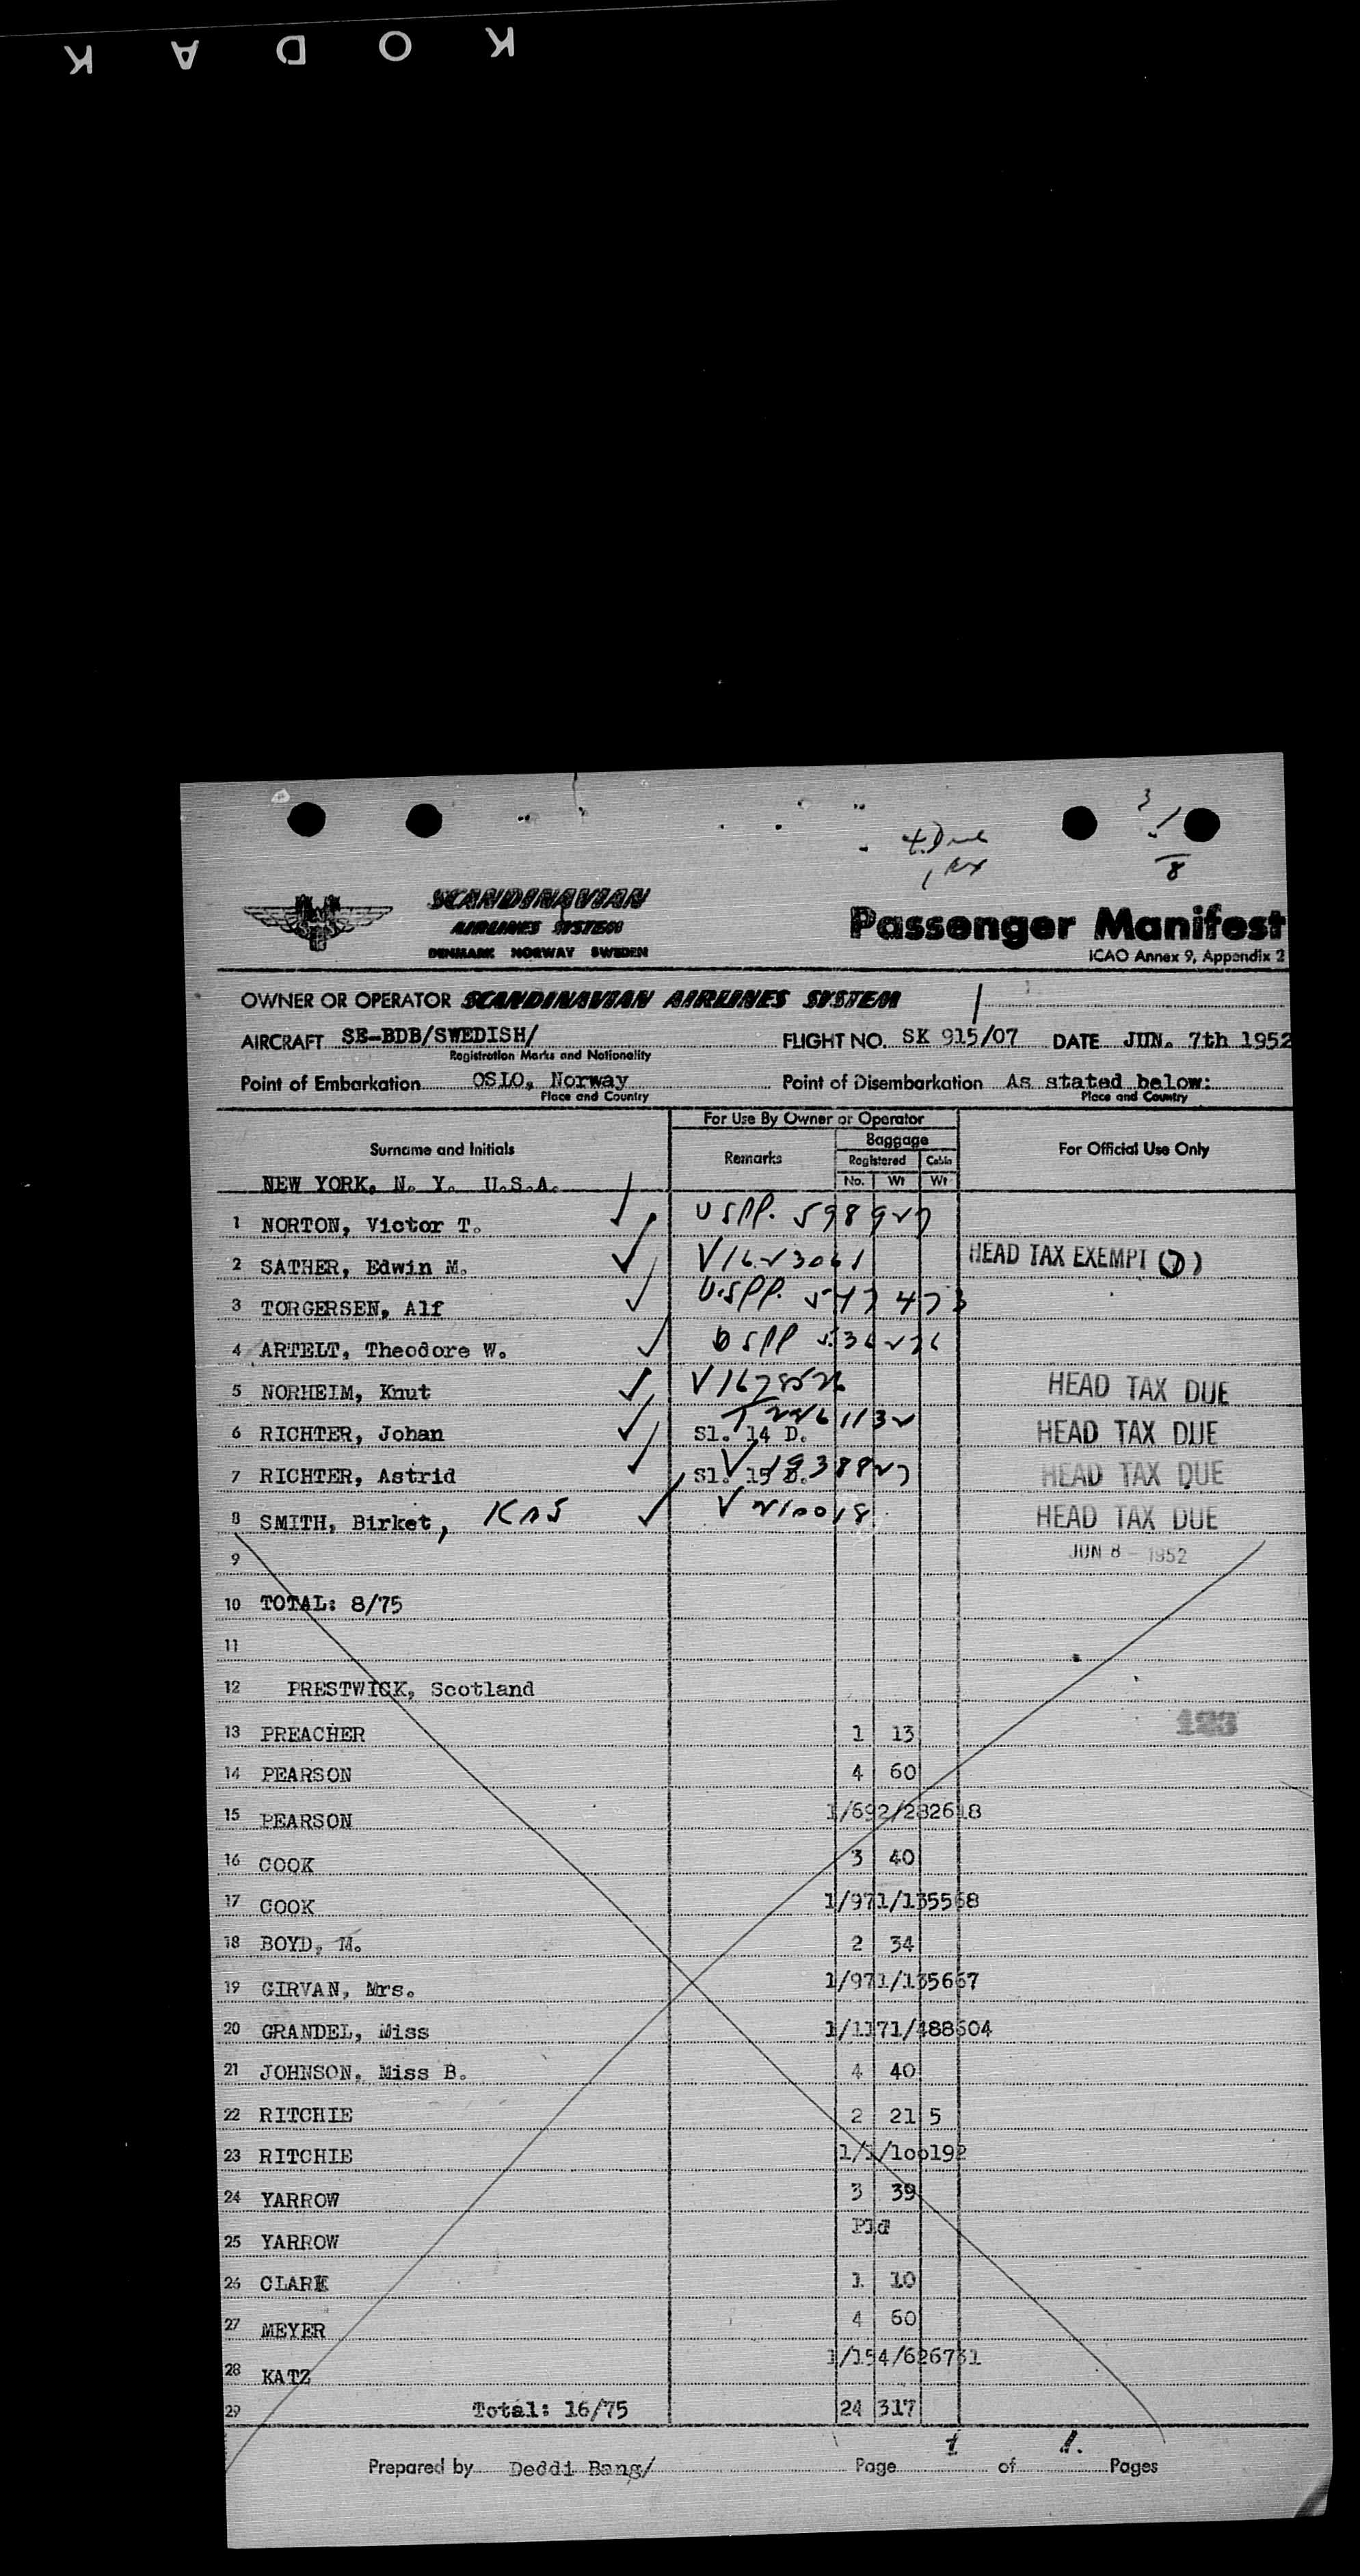 KODAK
SCANDINAVIAN
AIRLINES SYSTEM
DENMARK NORWAY SWEDEN
Passenger Manifest
ICAO Annex 9, Appendix 2
OWNER OR OPERATOR SCANDINAVIAN AIRLINES SYSTEM
AIRCRAFT SE-BDB/SWEDISH/ FLIGHT NO. SK 915/07 DATE JUN. 7th 1952
Registration Marks and Nationality
Point of Embarkation OSLO, Norway Point of Disembarkation As stated below:
Place and Country Place and Country
For Use By Owner or Operator
Surname and Initials Remarks Baggage For Official Use Only
Registered Cabin
No. Wt Wt
NEW YORK, N. Y. U.S.A.
1 NORTON, Victor T. USPP. 598927
2 SATHER, Edwin M. V1623061 HEAD TAX EXEMPT (7)
3 TORGERSEN, Alf U.SPP. 547473
4 ARTELT, Theodore W. USPP 536226
5 NORHEIM, Knut HEAD TAX DUE
6 RICHTER, Johan Sl. 14 D. HEAD TAX DUE
7 RICHTER, Astrid Sl. 15 D. HEAD TAX DUE
8 SMITH, Birket, KAS V 210018 HEAD TAX DUE
JUN 8 - 1952
9
10 TOTAL: 8/75
11
12 PRESTWICK, Scotland
13 PREACHER 1 13 123
14 PEARSON 4 60
15 PEARSON 1/692/282618
16 COOK 3 40
17 COOK 1/971/135568
18 BOYD, M. 2 34
19 GIRVAN, Mrs. 1/971/135667
20 GRANDEL, Miss 1/1171/488604
21 JOHNSON, Miss B. 4 40
22 RITCHIE 2 21 5
23 RITCHIE 1/1/100192
24 YARROW 3 39
25 YARROW Pld
26 CLARK 1 10
27 MEYER 4 60
28 KATZ 1/154/626731
29 Total: 16/75 24 317
Prepared by Deddi Bang/ Page 1 of 1. Pages